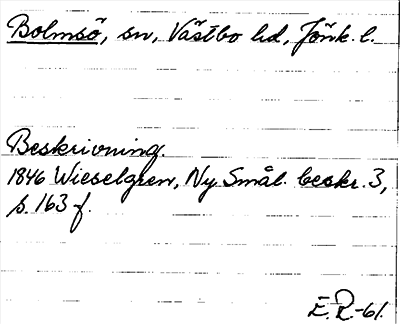 Bolmsö, sn, Västbo hd, Jönk. l.
Beskrivning.
1846 Wieselgren, Ny Smål. beskr. 3,
s. 163 f.
E.R-61.